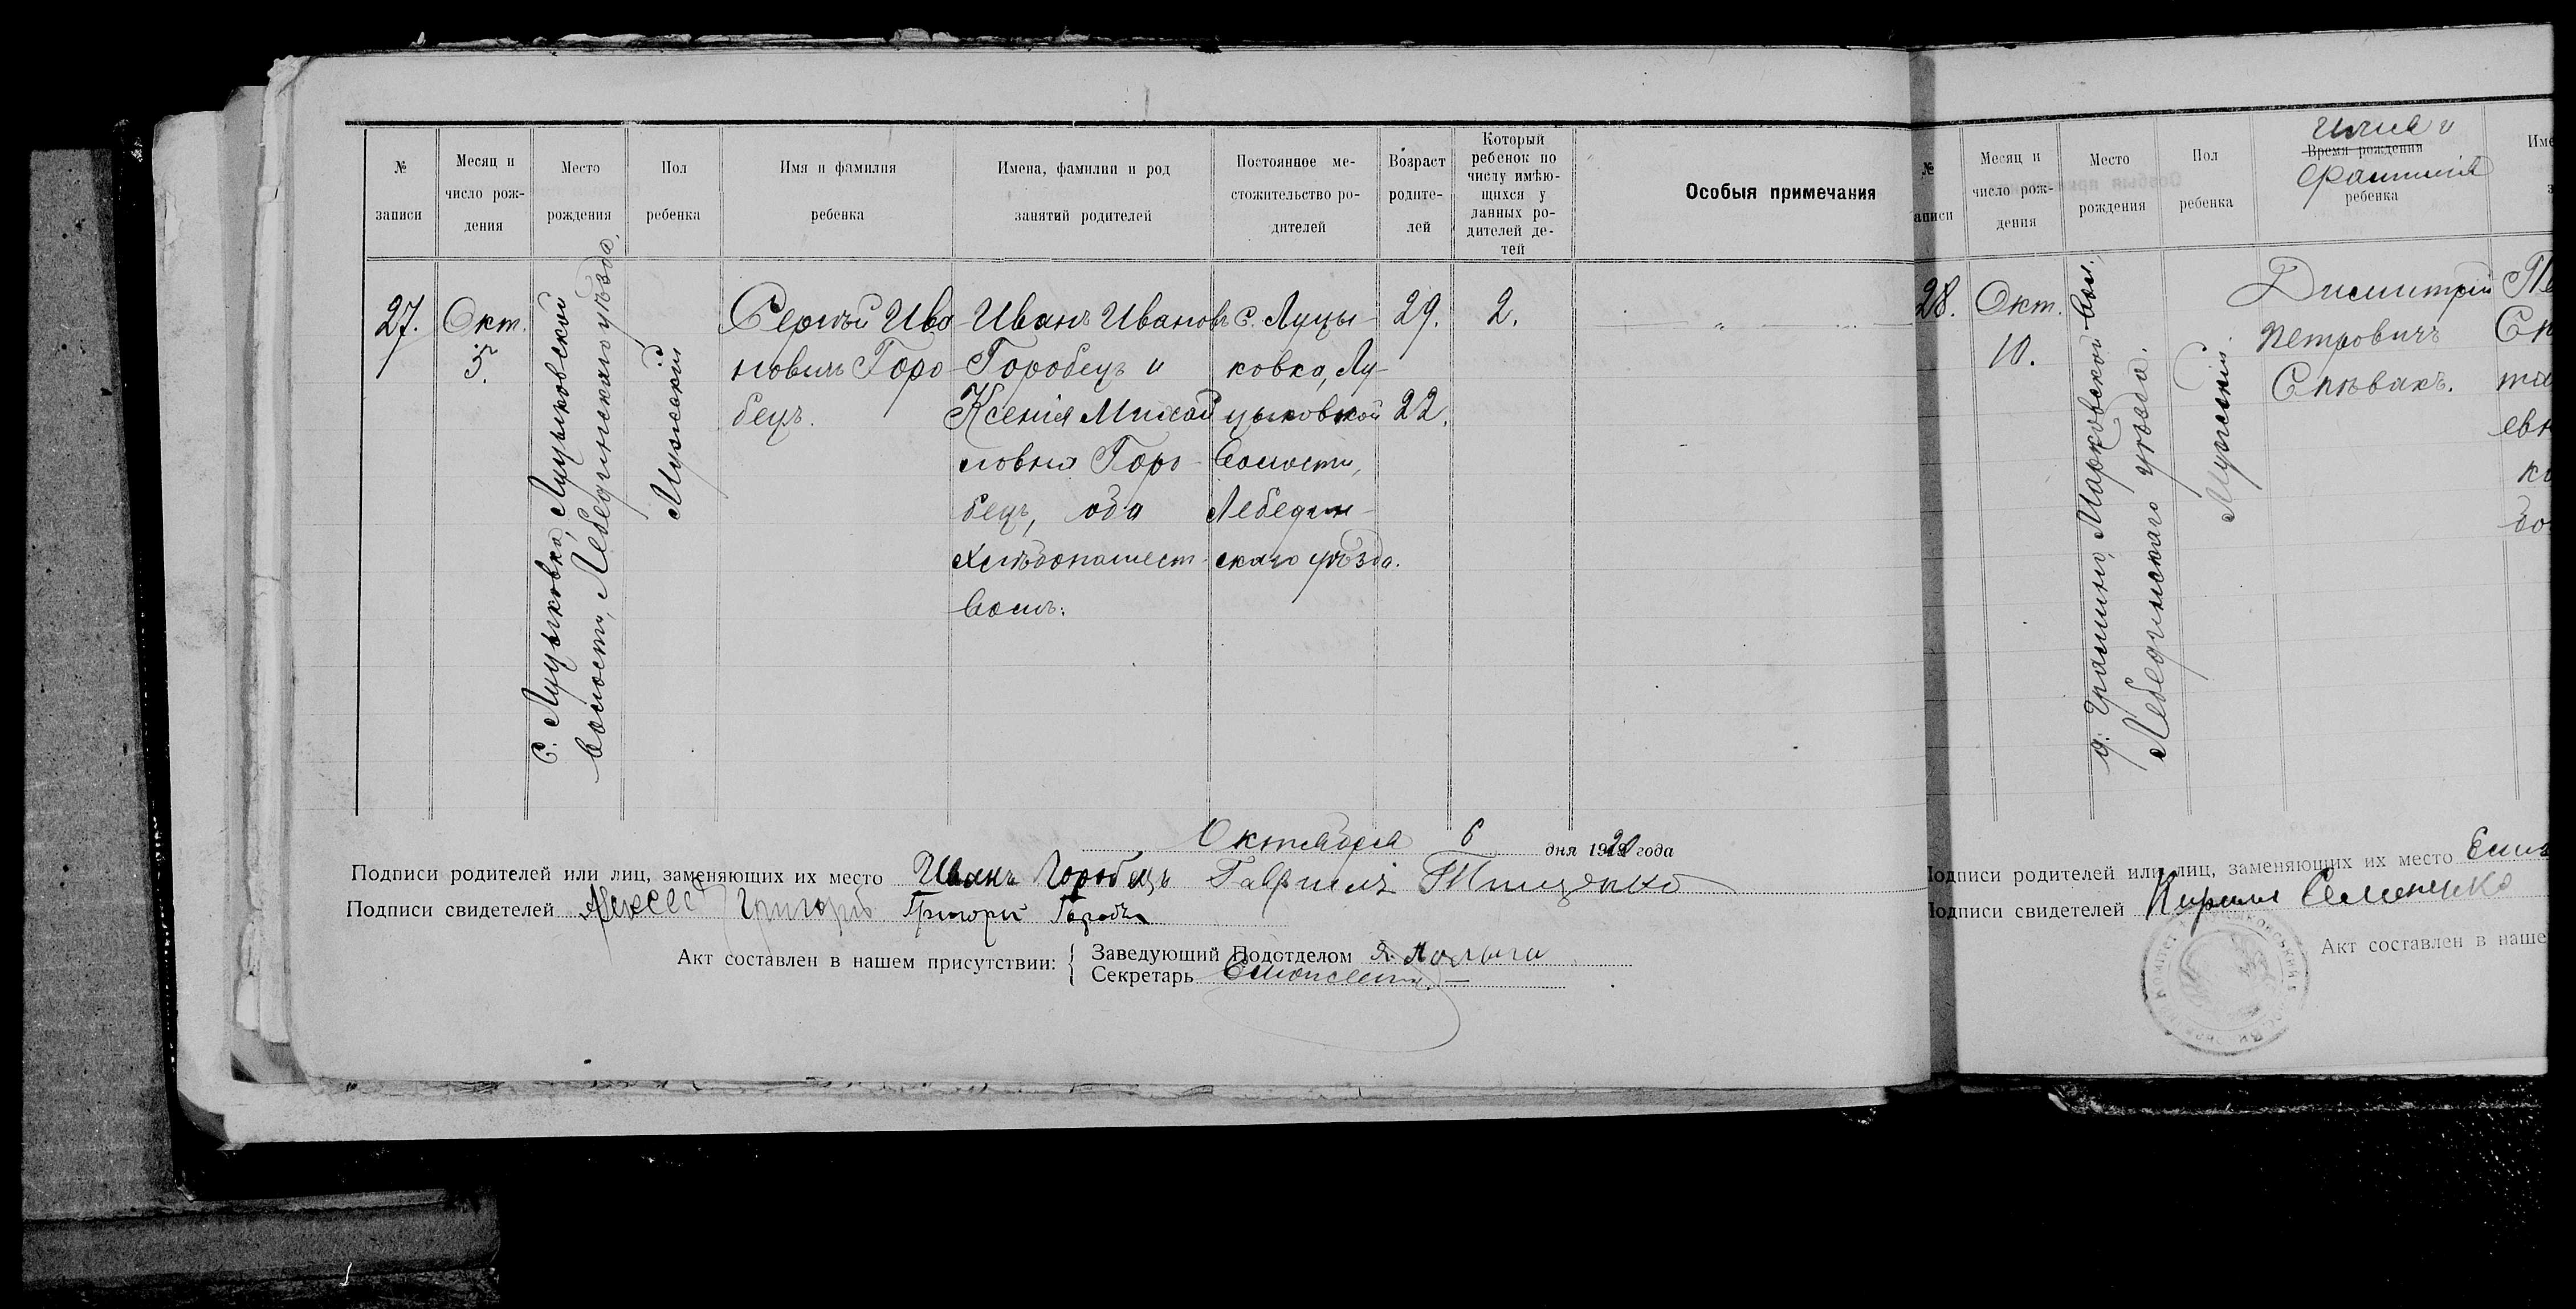 № записи
Месяц и число рождения
Место рождения
Пол ребенка
Имя и фамилия ребенка
Имена, фамилии и род занятий родителей
Постоянное местожительство родителей
Возраст родителей
Который ребенок по числу имѣющихся у данных родителей детей
Особыя примечания
27.
Окт.
5.
С. Луцыковка, Луцыковской
волости, Лебединскаго уѣзда.
Мужской
Сергѣй Ива
новичъ Горо
бецъ.
Иванъ Ивановъ
Горобецъ и
Ксенія Михай
ловна Горо
бецъ, оба
хлѣбопашест
вомъ.
с. Луцы
ковка, Лу-
цыковской
волости,
Лебедин-
скаго уѣзда.
29.
22.
2.
Октября 6 дня 1920 года
Подписи родителей или лиц, заменяющих их место Иванъ Горобецъ Гавриилъ Тищенко
Подписи свидетелей Алексей Григорий Горобец
Акт составлен в нашем присутствии:
Заведующий Подотделом
Секретарь
№ записи
Месяц и число рождения
Место рождения
Пол ребенка
имя и
Время рождения
фамилия
ребенка
Име
28.
Окт.
10.
Марковской вол.
Лебединскаго уѣзда.
Мужский
Димитрій
Петровичъ
Спѣвакъ.
Подписи родителей или лиц, заменяющих их место
Подписи свидетелей Кирилл Семенченко
Акт составлен в наше